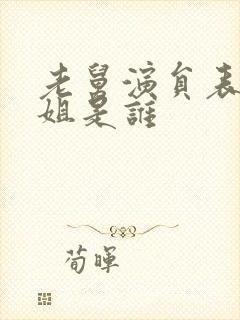 老舅演員表
姐是誰
荀暉